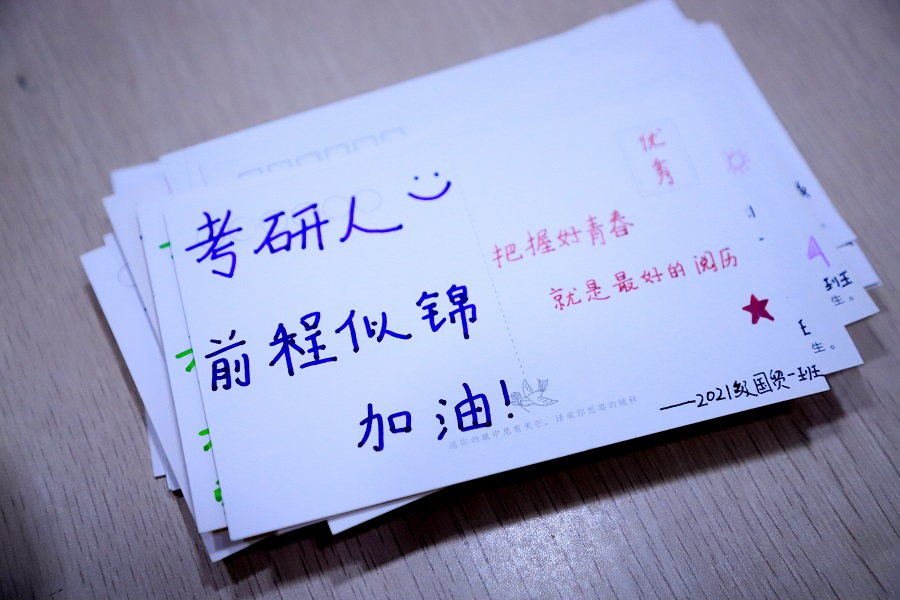 考研人
前程似锦
加油!
优秀
把握好青春
就是最好的阅历
愿你的眼中总有光芒,活成你想要的模样
——2021级国贸一班
班
生。
生。